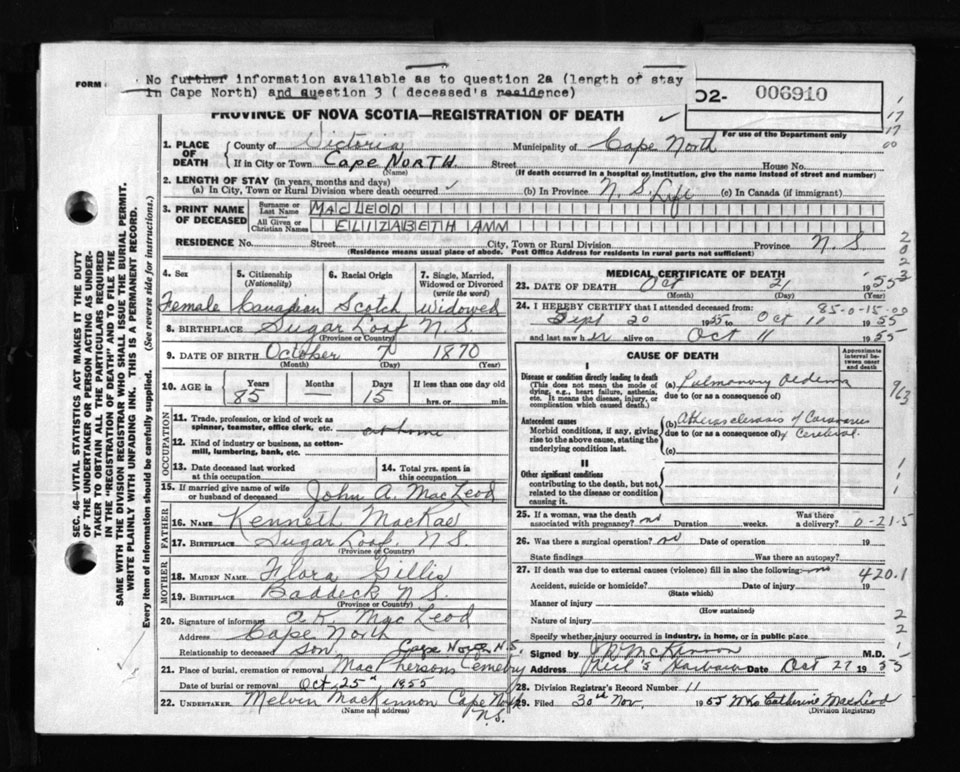 FORM
No further information available as to question 2a (length of stay
in Cape North) and question 3 ( deceased's residence)
02- 006910
For use of the Department only
PROVINCE OF NOVA SCOTIA—REGISTRATION OF DEATH
SEC. 46—VITAL STATISTICS ACT MAKES IT THE DUTY
OF THE UNDERTAKER OR PERSON ACTING AS UNDER-
TAKER TO OBTAIN ALL THE PARTICULARS REQUIRED
IN THE "REGISTRATION OF DEATH" AND TO FILE THE
SAME WITH THE DIVISION REGISTRAR WHO SHALL ISSUE THE BURIAL PERMIT.
WRITE PLAINLY WITH UNFADING INK. THIS IS A PERMANENT RECORD.
Every item of information should be carefully supplied. (See reverse side for instructions.)
1. PLACE OF DEATH
County of Victoria Municipality of Cape North
If in City or Town Cape NORTH Street House No.
(Name) (If death occurred in a hospital or institution, give the name instead of street and number)
2. LENGTH OF STAY (in years, months and days)
(a) In City, Town or Rural Division where death occurred (b) In Province N. S. Life (c) In Canada (if immigrant)
3. PRINT NAME OF DECEASED
Surname or Last Name MACLEOD
All Given or Christian Names ELIZABETH ANN
RESIDENCE No. Street City, Town or Rural Division Province N. S.
(Residence means usual place of abode. Post Office Address for residents in rural parts not sufficient)
4. Sex 5. Citizenship (Nationality) 6. Racial Origin 7. Single, Married, Widowed or Divorced (write the word)
Female Canadian Scotch Widowed
8. BIRTHPLACE Sugar Loaf N. S.
(Province or Country)
9. DATE OF BIRTH October 7 1870
(Month) (Day) (Year)
10. AGE in Years Months Days If less than one day old
85 — 15 hrs. or min.
OCCUPATION
11. Trade, profession, or kind of work as
spinner, teamster, office clerk, etc. at home
12. Kind of industry or business, as cotton-
mill, lumbering, bank, etc.
13. Date deceased last worked
at this occupation
14. Total yrs. spent in
this occupation
15. If married give name of wife
or husband of deceased John A. MacLeod
FATHER
16. NAME Kenneth MacRae
17. BIRTHPLACE Sugar Loaf, N S.
(Province or Country)
MOTHER
18. MAIDEN NAME Flora Gillis
19. BIRTHPLACE Baddeck N S.
(Province or Country)
20. Signature of informant MacLeod
Address Cape North
Relationship to deceased Son
Cape North N.S.
21. Place of burial, cremation or removal MacPhersons Cemetry
Date of burial or removal Oct 25th 1955
22. UNDERTAKER Melvin MacKinnon Cape North
N.S.
(Name and address)
MEDICAL CERTIFICATE OF DEATH
23. DATE OF DEATH Oct 21 1955
(Month) (Day) (Year)
85-0-15-00
24. I HEREBY CERTIFY that I attended deceased from:
Sept 20 1955 to Oct 11 1955
and last saw her alive on Oct 11 1955
CAUSE OF DEATH
Approximate interval between onset and death
I
Disease or condition directly leading to death
(This does not mean the mode of dying, e.g., heart failure, asthenia, etc. It means the disease, injury, or complication which caused death.)
(a) Pulmonary Oedema
due to (or as a consequence of)
Antecedent causes
Morbid conditions, if any, giving rise to the above cause, stating the underlying condition last.
(b) Atherosclerosis of Coronaries
due to (or as a consequence of) & Cerebral
(c)
II
Other significant conditions
contributing to the death, but not related to the disease or condition causing it.
25. If a woman, was the death
associated with pregnancy? no Duration weeks.
Was there a delivery? 0-21.5
26. Was there a surgical operation? no Date of operation 19
State findings Was there an autopsy?
27. If death was due to external causes (violence) fill in also the following: no
420.1
Accident, suicide or homicide? Date of injury 19
(State which)
Manner of injury
(How sustained)
Nature of injury
Specify whether injury occurred in industry, in home, or in public place
Signed by McKinnon M.D.
Address Neil's Harbour Date Oct 27 1955
28. Division Registrar's Record Number 11
29. Filed 30th Nov. 1955 Mrs Catherine MacLeod
(Division Registrar)